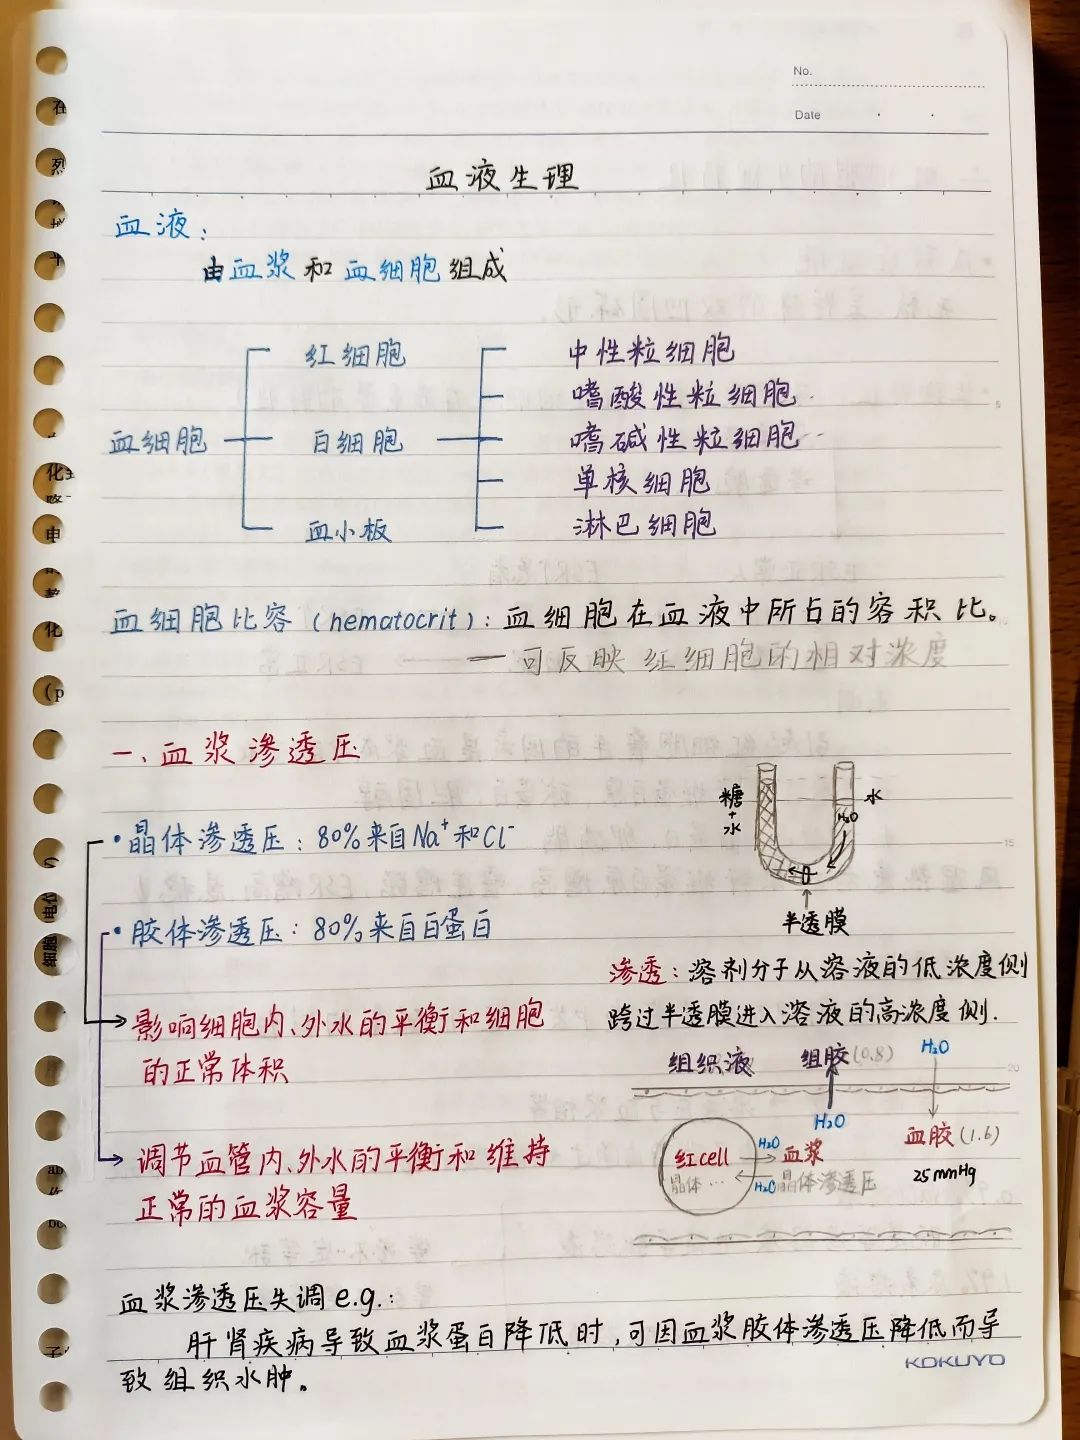 No.
Date
血液生理
血液：
由血浆和血细胞组成
红细胞
中性粒细胞
嗜酸性粒细胞
血细胞
白细胞
嗜碱性粒细胞
单核细胞
血小板
淋巴细胞
血细胞比容（hematocrit）：血细胞在血液中所占的容积比。
一可反映红细胞的相对浓度
一、血浆渗透压
糖+水
水
H₂O
半透膜
·晶体渗透压：80%来自Na⁺和Cl⁻
·胶体渗透压：80%来自白蛋白
渗透：溶剂分子从溶液的低浓度侧
跨过半透膜进入溶液的高浓度侧.
影响细胞内、外水的平衡和细胞
的正常体积
组织液
组胶(0.8)
H₂O
H₂O
血胶(1.6)
25mmHg
红cell
晶体…
H₂O
H₂O
血浆
晶体渗透压
调节血管内、外水的平衡和维持
正常的血浆容量
血浆渗透压失调e.g.：
肝肾疾病导致血浆蛋白降低时，可因血浆胶体渗透压降低而导
致组织水肿。
KOKUYO